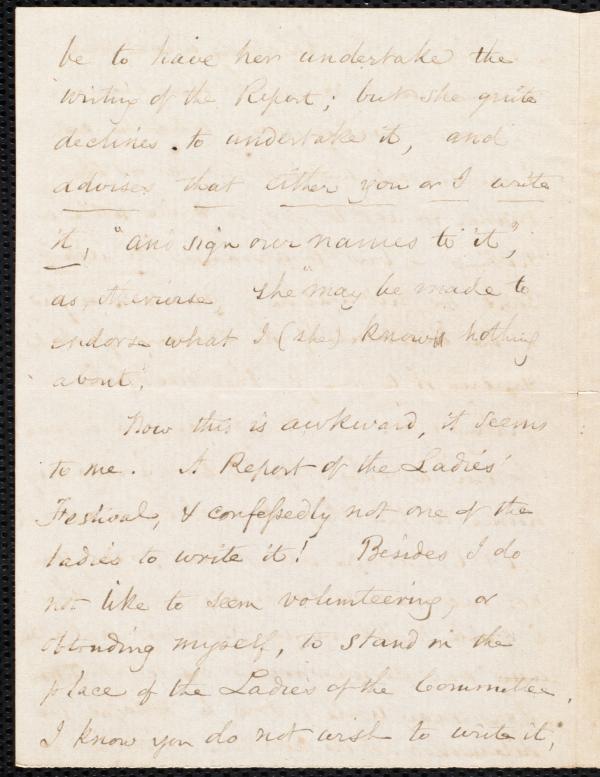 be to have her undertake the
writing of the Report; but she quite
declines to undertake it, and
advises that either you or I write
it, "and sign our names to it",
as, otherwise, she "may be made to
endorse what I (she) know nothing
about".
Now this is awkward, it seems
to me. A Report of the Ladies'
Festival, & confessedly not one of the
ladies to write it! Besides I do
not like to seem volunteering, or
obtruding myself, to stand in the
place of the Ladies of the Committee.
I know you do not wish to write it,